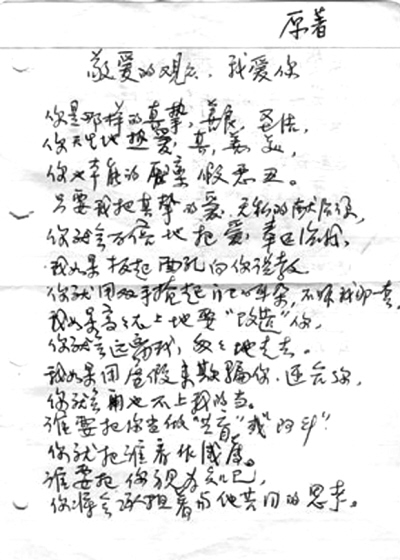 原著
敬爱的观众，我爱你
你是那样的真挚，善良，圣洁，
你天生地热爱，真，善，美，
你也本能的厌弃假恶丑。
只要我把真挚的爱，无私的献给你，
你就会万倍地把爱，奉还给我，
我如果板起面孔向你说教
你就用双手掩起自己的耳朵，不听我那一套，
我如果高高在上地要“改造”你，
你就会远离我，匆匆地走去。
我如果用虚假来欺骗你，迎合你，
你就会再也不上我的当。
谁要把你当做“群盲”或“阿斗”
你就把谁看作傻瓜。
谁要把你视为知己，
你将会承担着与他共同的思考。